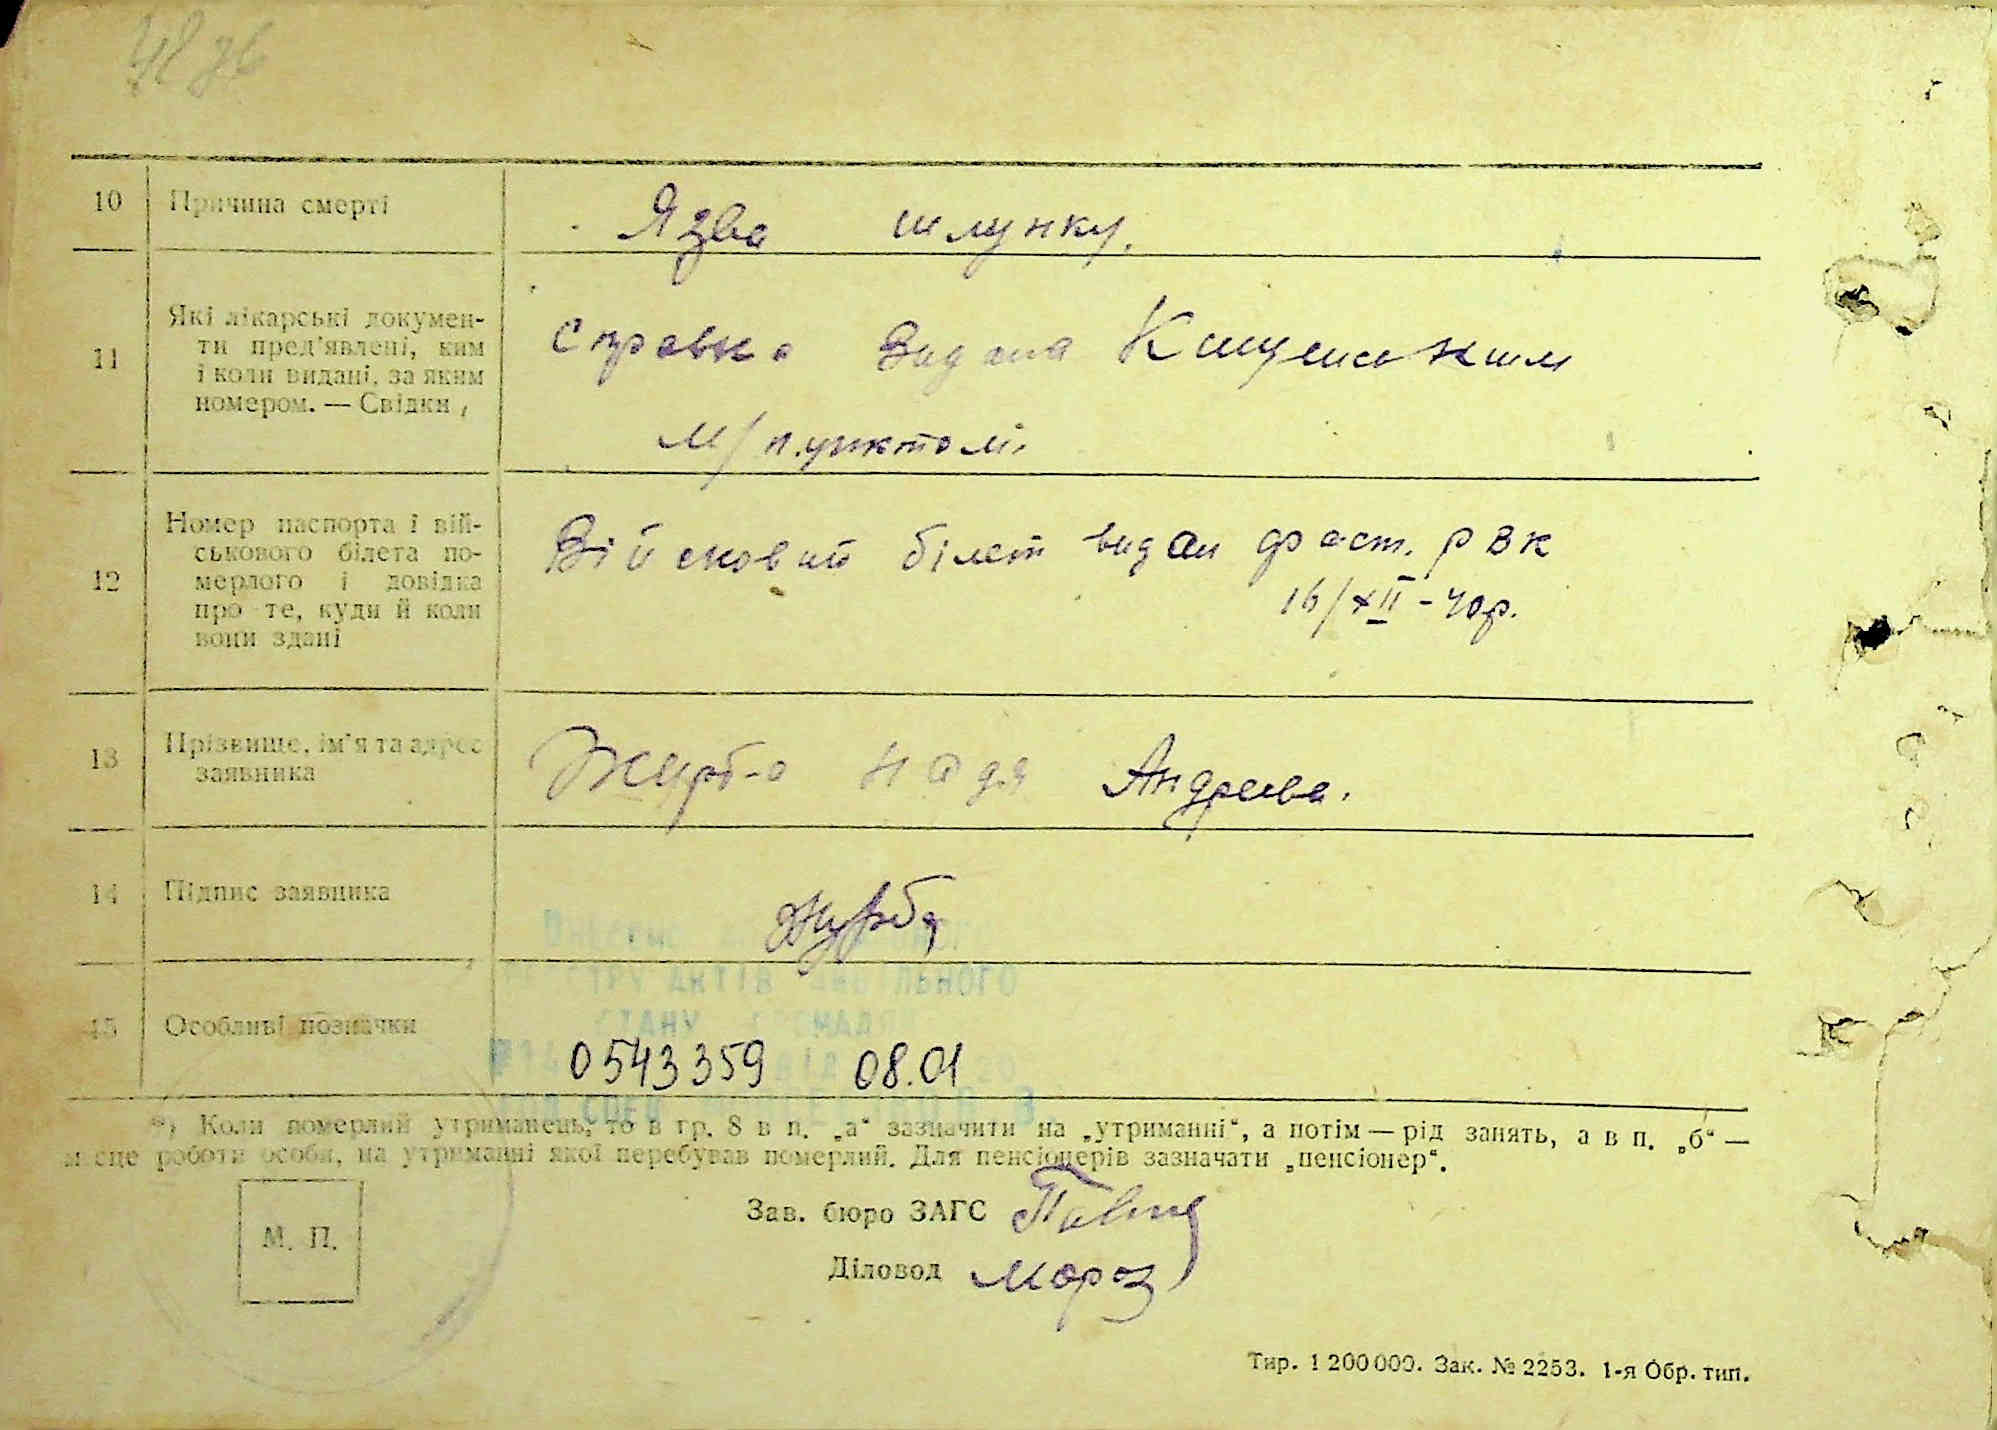 10 Причина смерті
Язва шлунку.
11 Які лікарські докумен-
ти пред'явлені, ким
і коли видані, за яким
номером. — Свідки,
Справка видана
м/пунктом.
12 Номер паспорта і вій-
ськового білета по-
мерлого і довідка
про те, куди й коли
вони здані
Війсковий білет видан фаст. РВК
16/XII-40р.
13 Прізвище, ім'я та адрес
заявника
Журба Надя Андреева.
14 Підпис заявника
Журба
РЕЄСТРУ АКТІВ ЦИВІЛЬНОГО
СТАНУ ГРОМАДЯН
15 Особливі позначки
0543359 08.01
*) Коли померлий утриманець, то в гр. 8 в п. „а“ зазначити на „утриманні“, а потім — рід занять, а в п. „б“ —
місце роботи особи, на утриманні якої перебував померлий. Для пенсіонерів зазначати „пенсіонер“.
М. П.
Зав. бюро ЗАГС
Діловод Мороз
Тир. 1 200 000. Зак. № 2253. 1-я Обр. тип.